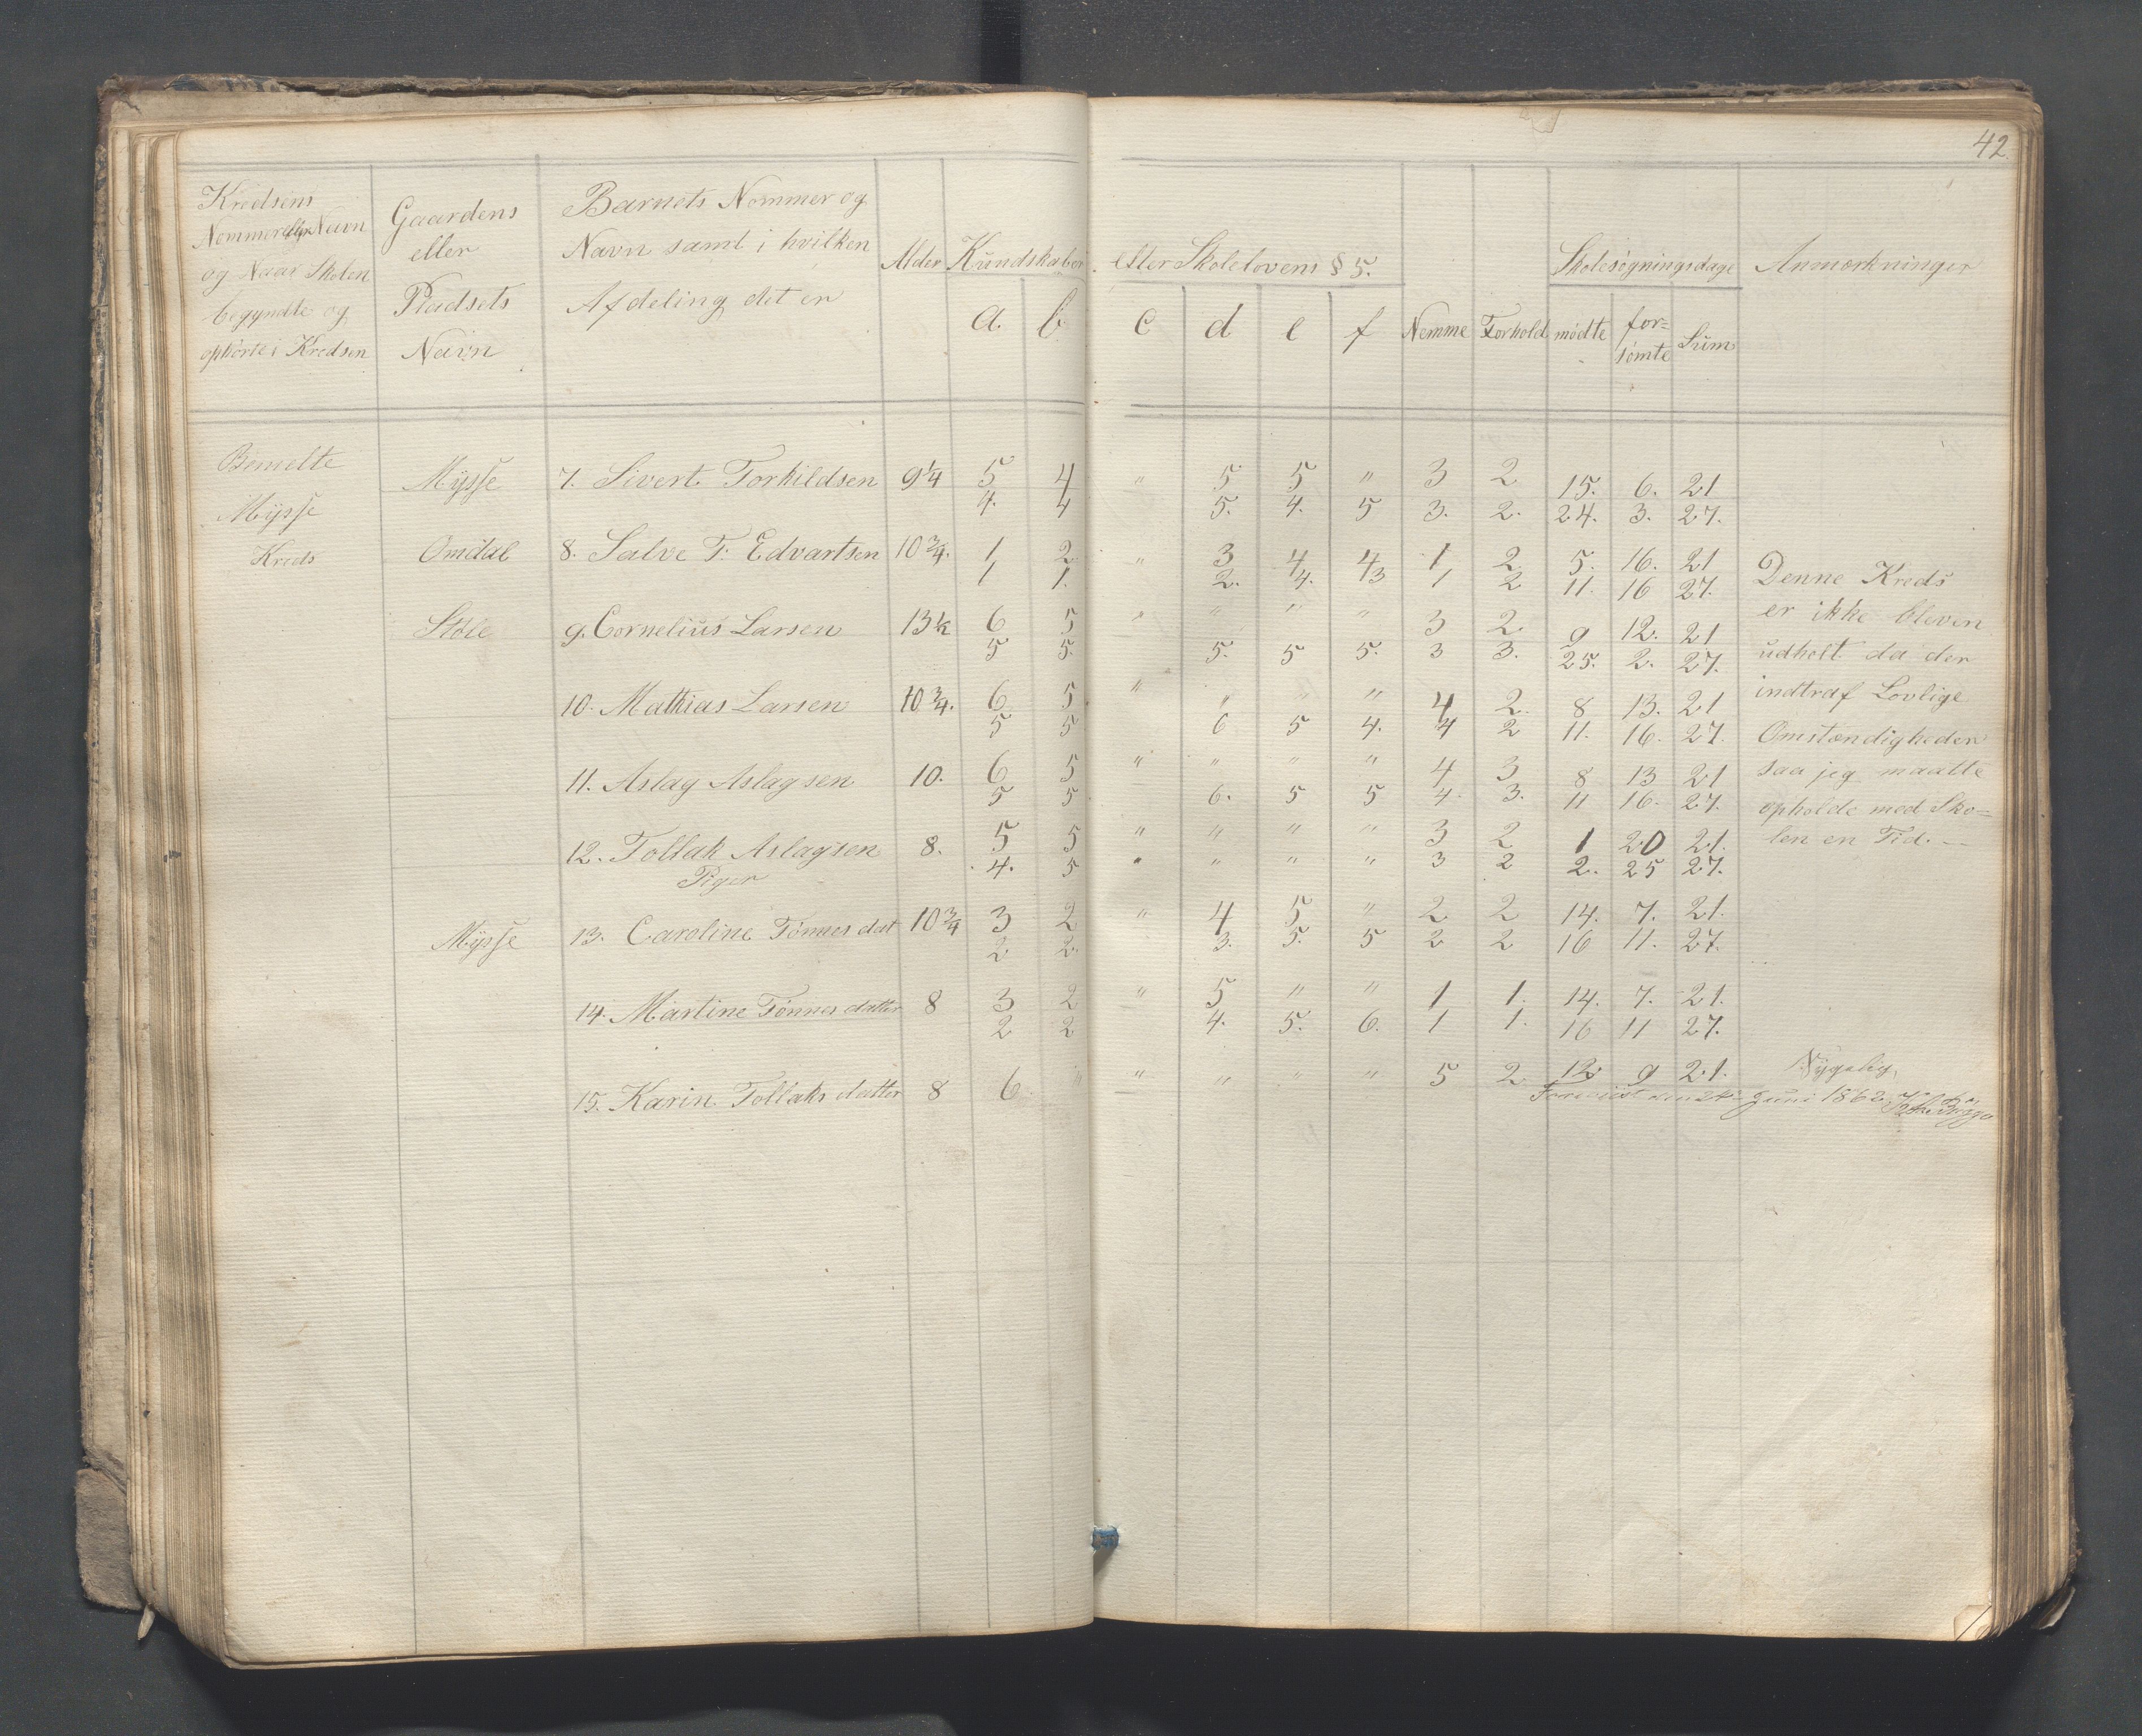 42
Kredsens Nommer eller Navn og Naar Skolen begyndte og ophørte i Kredsen | Gaardens eller Pladsets Navn | Barnets Nommer og Navn samt i hvilken Afdeling det er | Alder | Kundskaber efter Skolelovens § 5. | Skolesøgningsdage | Anmærkninger
a. b. c d e f Nemme Forhold mødte for=sømte Sum
Bemelte Mysse 7. Sivert Torkildsen 9 1/4 5 4 " 5 5 " 3 2 15. 6. 21
Mysse 4. 4 5. 4. 5 3. 2. 24. 3. 27.
Kreds Omdal 8. Salve T. Edvartsen 10 3/4. 1 2 " 3 4 4 1 2 5. 16. 21
1 1. 2. 4. 3 1 2 11. 16 27. Denne Kreds
Støle 9. Cornelius Larsen 13 6 5 " " " " 3 2 9 12. 21 er ikke bleven
5 5. 5. 5 5. 3 3. 25. 2. 27. udholt da der
10. Mathias Larsen 10 3/4. 6 5 " " " " 4 2. 8 13. 21 indtraf Lovlige
5 5 6 5 4. 4 2 11. 16. 27. Omstændigheder
11. Aslag Aslagsen 10. 6 5 " " " " 4 3 8 13 21 saa jeg maatte
5 5 6. 5 5 4. 3. 11 16. 27. opholde med Sko=
12. Tollak Aslagsen 8. 5 5 " " " " 3 2 1 20 21. len en Tid. —
4. 5 " " " " 3 2 2. 25 27.
Piger
Mysse 13. Caroline Tønnesdat 10 3/4 3 2 " 4 5 " 2 2 14. 7. 21.
2 2. 3. 5. 5 2 2 16 11. 27.
14. Martine Tønnesdatter 8 3 2 " 5 " " 1 1. 14. 7. 21.
2 2 4. 5. 6. 1 1. 16 11 27.
15. Karin Tollaksdatter 8 6 " " " " " 5 2 12 9 21.
Foreviist den 24 Juni 1862